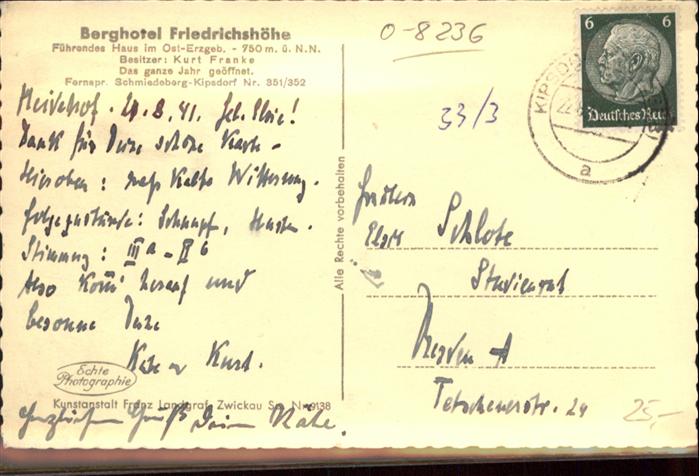 Berghotel Friedrichshöhe
Führendes Haus im Ost-Erzgeb. - 750 m. ü. N.N.
Besitzer: Kurt Franke
Das ganze Jahr geöffnet.
Fernspr. Schmiedeberg-Kipsdorf Nr. 351/352
8. 41.
Dank für Deine schöne Karte -
Hier oben: naß kalte Witterung.
Folgezustände: Schnupf, Husten.
Stimmung: III a - II b
Also komm herauf und
besonne Deine
Käte u Kurt.
Echte
Photographie
Kunstanstalt Franz Landgraf, Zwickau Sa. Nr. 9138
Herzlichen Gruß Deine Käte.
Alle Rechte vorbehalten
0-8236
33/3
6 6
Deutsches Reich
KIPSDO
a
Fräulein
Schlote
Studienrat
Dresden A
Tetschenerstr. 24
25,-